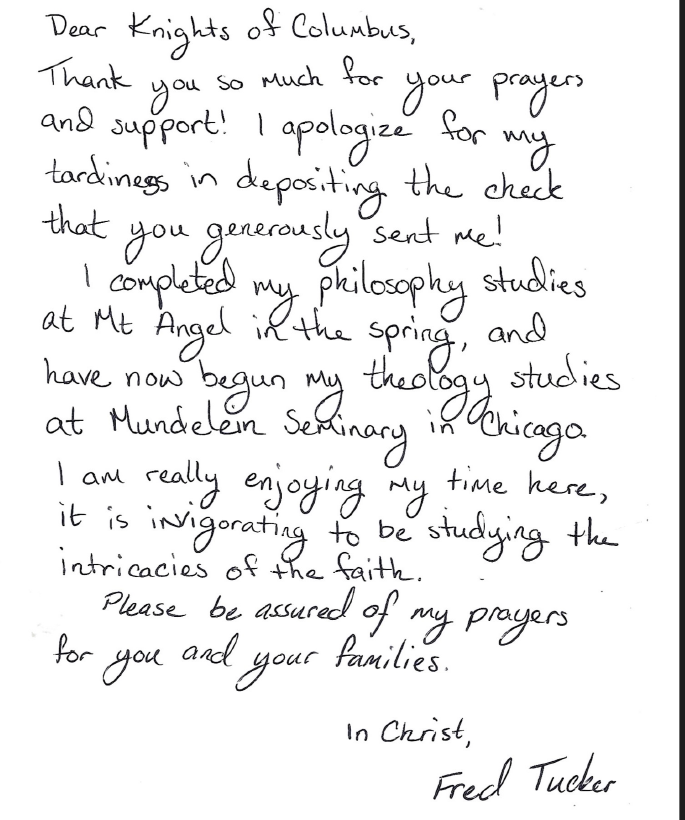 Dear Knights of Columbus,
Thank you so much for your prayers
and support! I apologize for my
tardiness in depositing the check
that you generously sent me!
I completed my philosophy studies
at Mt Angel in the spring, and
have now begun my theology studies
at Mundelein Seminary in Chicago.
I am really enjoying my time here,
it is invigorating to be studying the
intricacies of the faith.
Please be assured of my prayers
for you and your families.
In Christ,
Fred Tucker